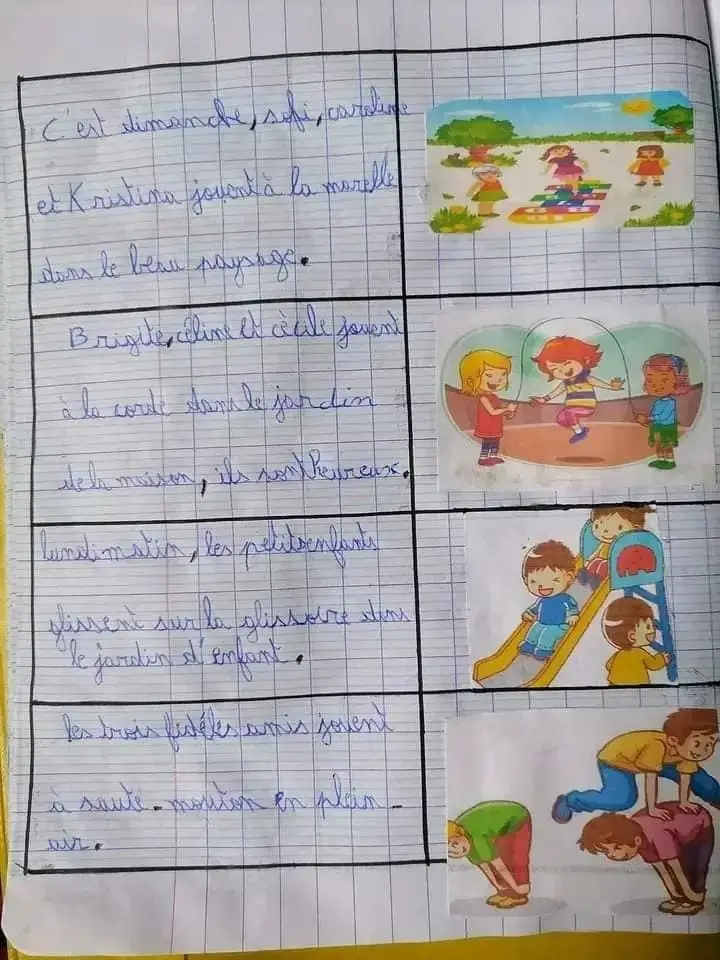 C'est dimanche, sofi, caroline
et Kristina jouent à la marelle
dans le beau paysage.
Brigite, céline et cècile jouent
à la corde dans le jardin
de la maison, ils sont heureux.
lundi matin, les petits enfants
glissent sur la glissoire dans
le jardin d'enfant.
les trois fidéles amis jouent
à saute-mouton en plein-
air.